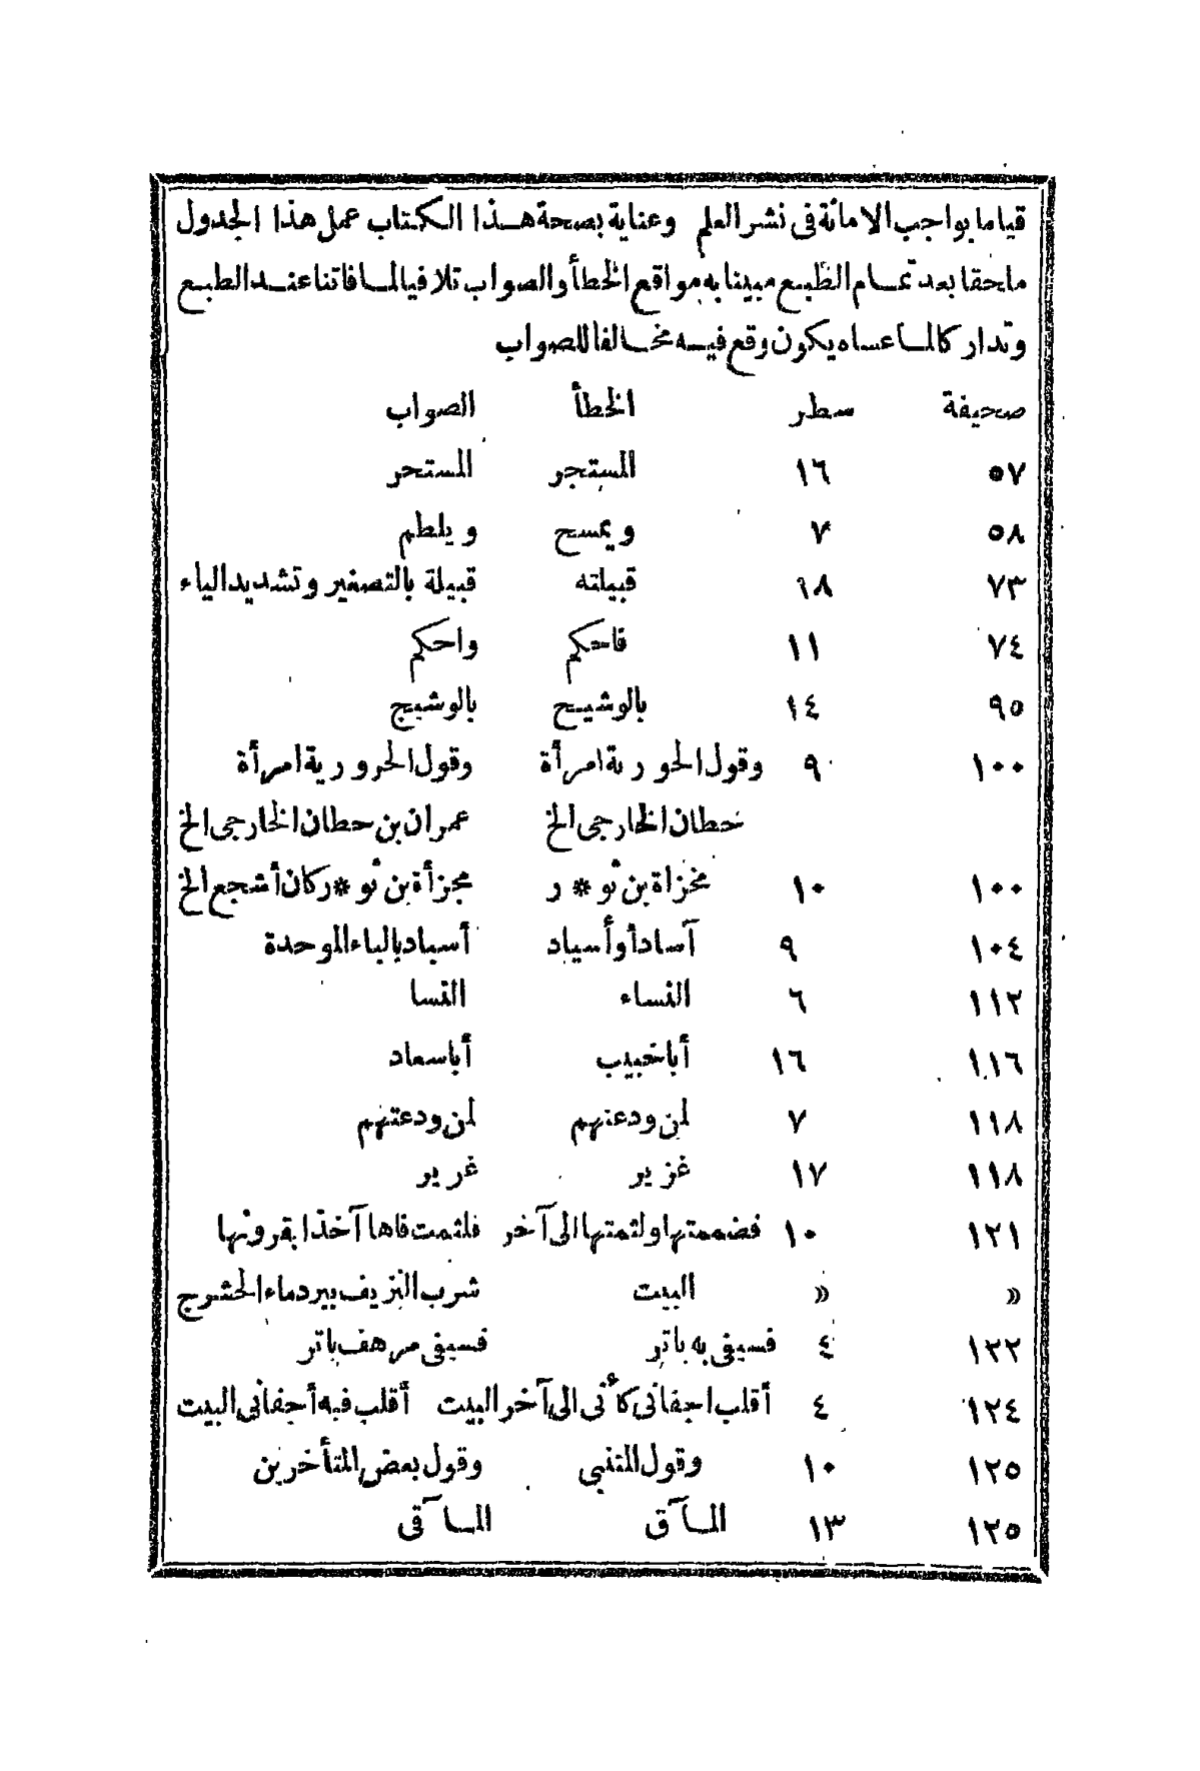 قياما بواجب الامانة فى نشر العلم وعناية بصحة هذا الكتاب عمل هذا الجدول
ملحقا بعد تمام الطبع مبينا به مواقع الخطأ والصواب تلافيا لما فاتنا عند الطبع
وتداركا لما عساه يكون وقع فيه مخالفا للصواب
صحيفة سطر الخطأ الصواب
٥٧ ١٦ المستجر المستحر
٥٨ ٧ ويمسح ويلطم
٧٣ ١٨ قبيلته قبيلة بالتصغير وتشديد الياء
٧٤ ١١ فاحكم واحكم
٩٥ ١٤ بالوشيح بالوشيج
١٠٠ ٩ وقول الحورية امرأة وقول الحرورية امرأة
حطان الخارجى الخ عمران بن حطان الخارجى الخ
١٠٠ ١٠ مخزاة بن ثو * ر مجزأة بن ثو * ر كان أشجع الخ
١٠٤ ٩ آسادأوأسياد أسباد بالباء الموحدة
١١٢ ٦ النساء النسا
١١٦ ١٦ أبا خبيب أبا سعاد
١١٨ ٧ لمن ودعنهم لمن ودعتهم
١١٨ ١٧ غزير غرير
١٢١ ١٠ فضممتها ولثمتها الى آخر فلثمت فاها آخذا بقرونها
» » البيت شرب النزيف ببرد ماء الحشرج
١٢٢ ٤ فسيفى به باتر فسيفى مرهف باتر
١٢٤ ٤ أقلب اجفانى كأنى الى آخر البيت أقلب فيه أجفانى البيت
١٢٥ ١٠ وقول المتنبى وقول بعض المتأخرين
١٢٥ ١٣ المآق المآقى